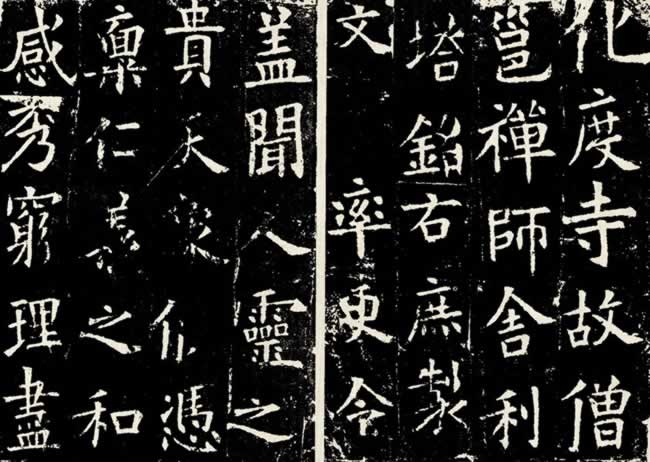 化度寺故僧
邕禪師舍利
塔銘右庶製
文率更令
盖聞人靈之
貴天象憑
稟仁義之和
感秀窮理盡